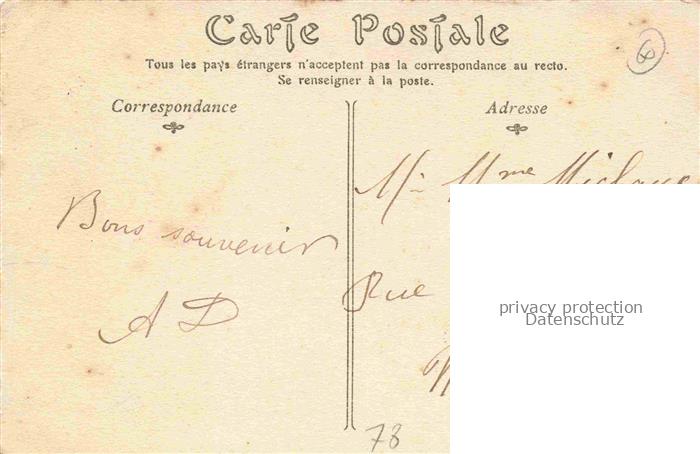 Carte Postale
Tous les pays étrangers n'acceptent pas la correspondance au recto.
Se renseigner à la poste.
Correspondance
Adresse
Mr Mme
Bons souvenir
Rue
A D
privacy protection
Datenschutz
78